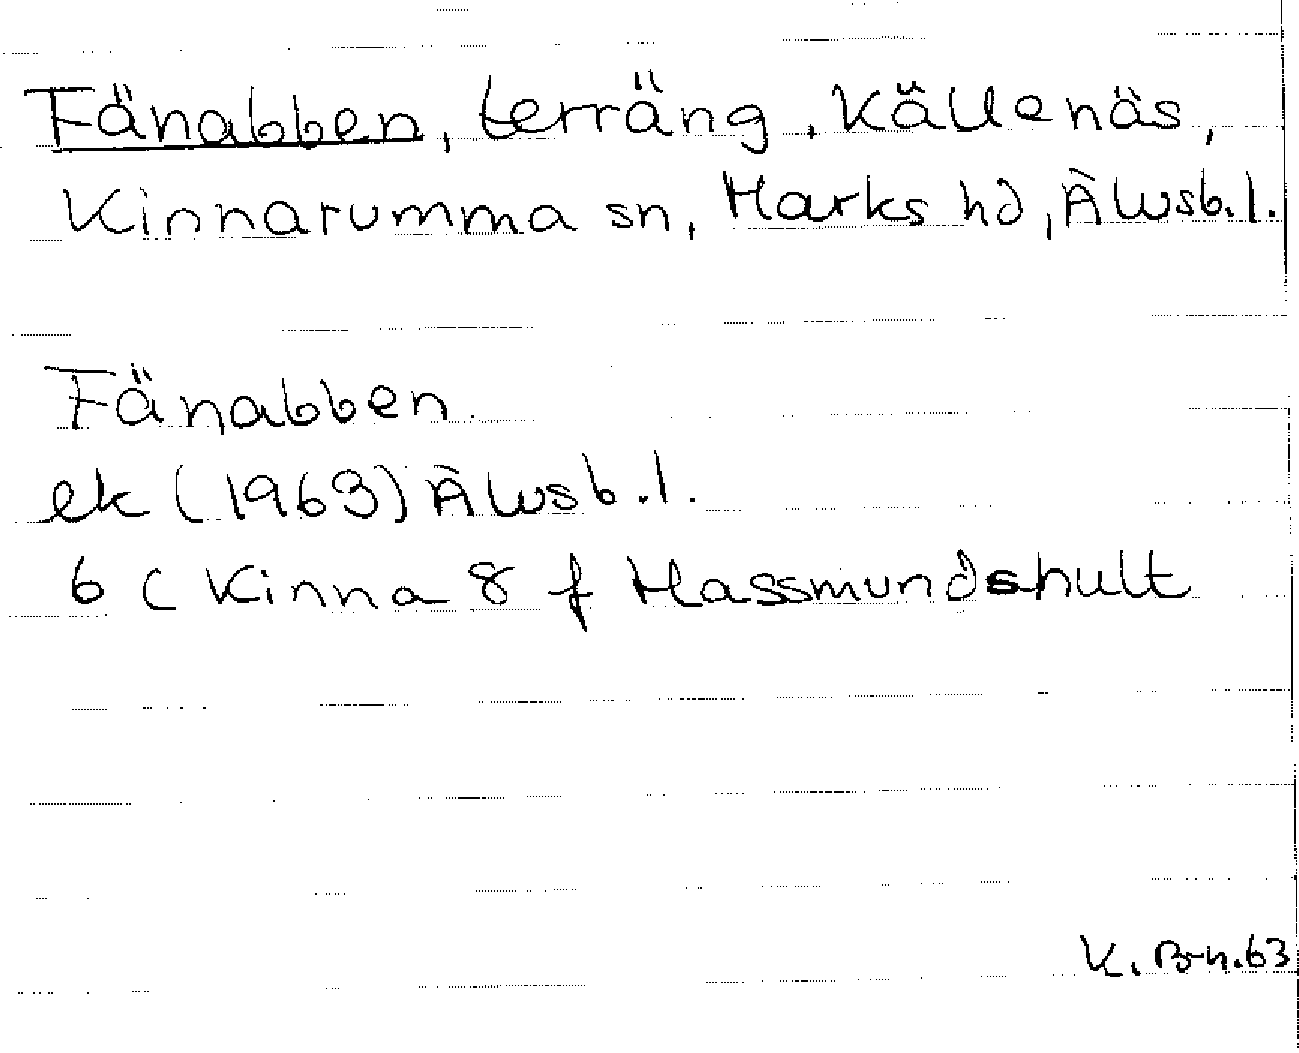 Fänabben, terräng, Källenäs,
Kinnarumma sn, Marks hd, Älvsb. l.
Fänabben
ek (1963) Älvsb. l.
6 C Kinna 8 f Hassmundshult
K. B-n. 63